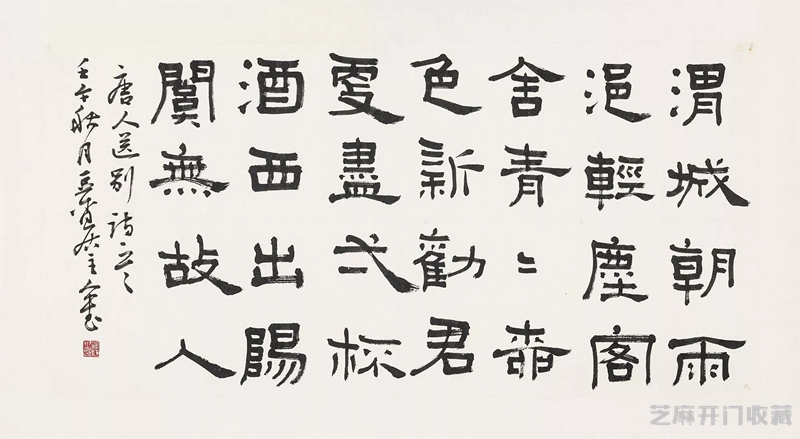 渭城朝雨
浥輕塵客
舍青〻柳
色新勸君
更盡弌杯
酒西出陽
關無故人
唐人送别詩
壬午秋月
芝麻开门收藏